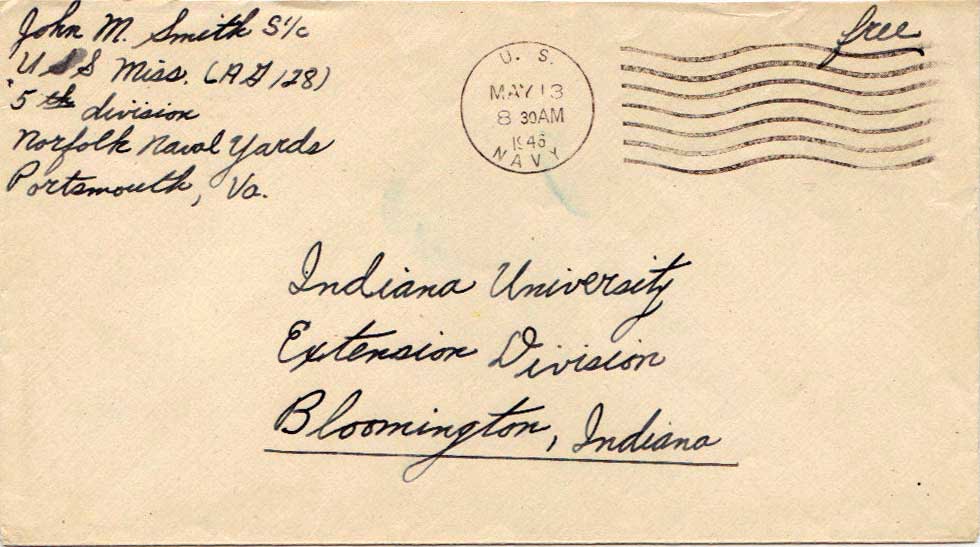 John M. Smith S1/c
USS Miss. (AG 128)
5th division
Norfolk Naval Yards
Portsmouth, Va.
U. S.
MAY 13
8 30AM
1946
NAVY
free
Indiana University
Extension Division
Bloomington, Indiana